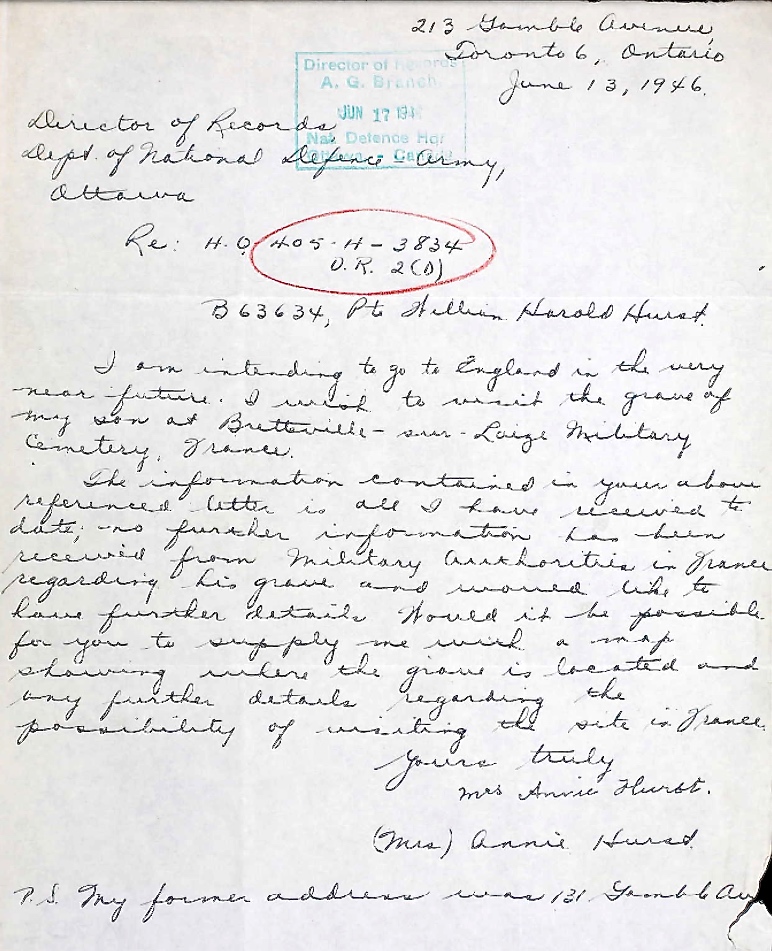 213 Gamble Avenue,
Toronto 6, Ontario
June 13, 1946.
Director of Records
A. G. Branch
JUN 17 194
Nat. Defence Hqr
Ottawa - Canada
Director of Records,
Dept. of National Defence - Army,
Ottawa
Re: H.Q. 405-H-3834
D.R. 2(D)
B63634, Pte William Harold Hurst.
I am intending to go to England in the very
near future. I wish to visit the grave of
my son at Bretteville-sur-Laize Military
Cemetery, France.
The information contained in your above
referenced letter is all I have received to
date; no further information has been
received from Military Authorities in France
regarding his grave and would like to
have further details. Would it be possible
for you to supply me with a map
showing where the grave is located and
any further details regarding the
possibility of visiting the site in France.
Yours truly
Mrs Annie Hurst.
(Mrs) Annie Hurst.
P.S. My former address was 131 Gamble Av